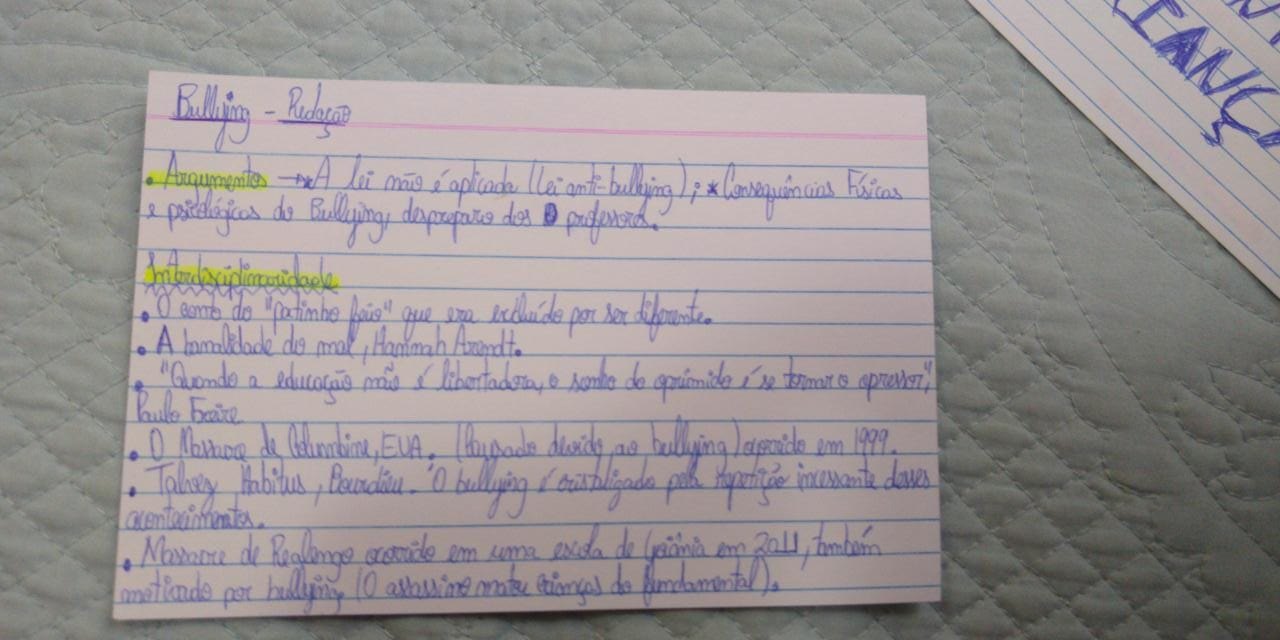 Bullying - Redação
• Argumentos → * A lei não é aplicada (Lei anti-bullying); * Consequências Físicas
e psicológicas do Bullying, despreparo dos professores.
Interdisciplinaridade
• O conto do "patinho feio" que era excluído por ser diferente.
• A banalidade do mal, Hannah Arendt.
• "Quando a educação não é libertadora, o sonho do oprimido é se tornar o opressor",
Paulo Freire
• O Massacre de Columbine, EUA. (Causado devido ao bullying) ocorrido em 1999.
• Talvez Habitus, Bourdieu. O bullying é cristalizado pela repetição incessante desses
acontecimentos.
• Massacre de Realengo ocorrido em uma escola de Goiânia em 2011, também
motivado por bullying. (O assassino matou crianças do fundamental).